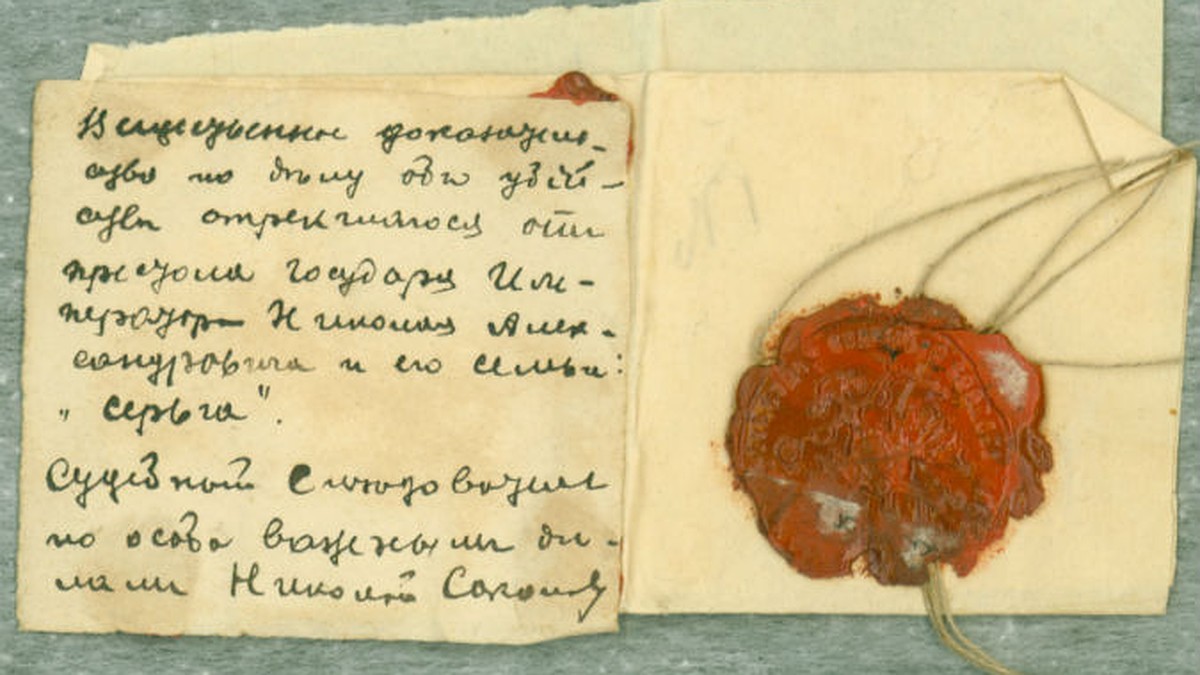 Вещественное доказатель-
ство по дѣлу объ убій-
ствѣ отрекшагося отъ
престола Государя Им-
ператора Николая Алек-
сандровича и его семьи:
„ серьга".
Судебный Слѣдователь
по особо важнымъ дѣ-
ламъ Николай Соколовъ